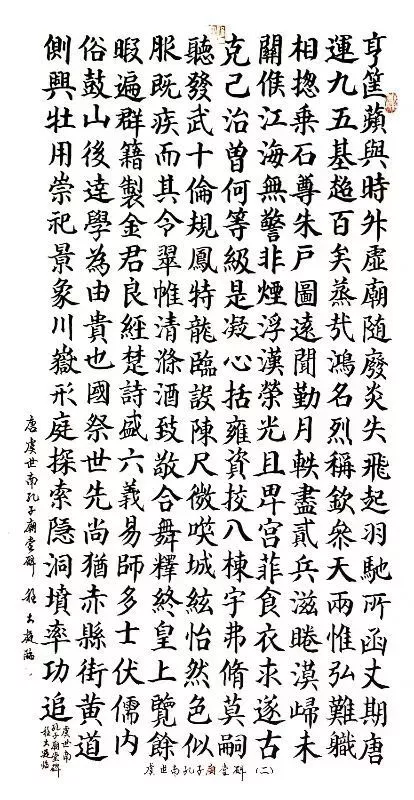 亨筐蘋與時外虛廟随廢炎失飛起羽馳所函丈期唐
運九五基趙百矣蒸㢤鴻名烈稱欽叅天兩惟弘難軄
相揔乗石尊朱戶圖遠聞勤月軼盡貳兵滋睠漠歸未
關候江海無警非煙浮漢榮光且畀宮菲食衣求遂古
克己治曽何等級是凝心括雍資挍八棟宇弗脩莫嗣
聽發武十倫規鳳特龍臨誤陳尺微嘆城絃怡然色似
服既疾而其令翠帷清滌酒致敬合舞釋終皇上覽餘
暇遍群籍製金君良經楚詩盛六義易師多士伏儒内
俗鼓山後逹學為由貴也國祭世先尚猶赤縣街黄道
側興壯用崇祀景象川嶽形庭探索隱洞墳率功追
唐虞世南孔子廟堂碑 臨
虞世南
孔子廟堂碑
臨
虞世南孔子廟堂碑（二）